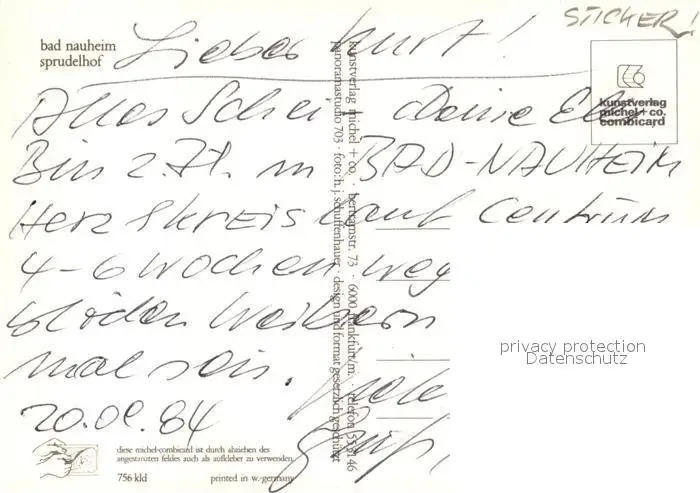 STICKER!
bad nauheim
sprudelhof
Lieber Kurt!
kunstverlag
michel + co.
combicard
Alles Scheiß Deine
Bin z. Zt. in BAD-NAUHEIM
Herz Centrum
4-6 Wochen weg
blöden Weibern
mal sein. Viele
20.09.84 Grüße,
kunstverlag michel + co. · bertramstr. 73 · 6000 frankfurt/m. · telefon 555146
panoramastudio 703 · foto: h. j. schuffenhauer · design und format gesetzlich geschützt
diese michel-combicard ist durch abziehen des
angestanzten feldes auch als aufkleber zu verwenden.
756 kld printed in w.-germany
privacy protection
Datenschutz